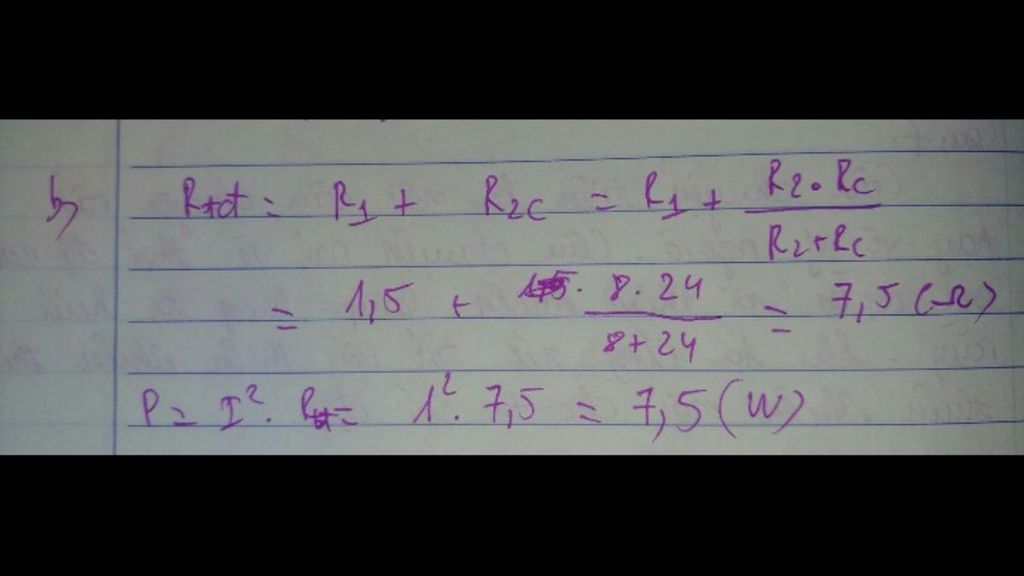 b) Rtđ = R1 + R2C = R1 + R2.RC / R2+RC
= 1,5 + 8.24 / 8+24 = 7,5 (Ω)
P = I². Rtđ = 1². 7,5 = 7,5 (W)